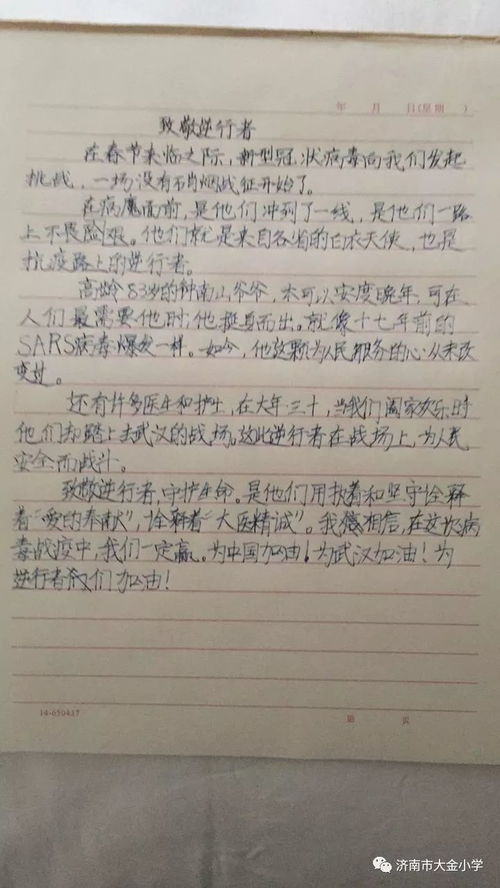 年 月 日(星期 )
致敬逆行者
在春节来临之际，新型冠状病毒向我们发起
挑战，一场没有硝烟战征开始了。
在病魔面前，是他们冲到了一线，是他们一路
上不畏艰艰。他们就是来自各省的白衣天使，也是
抗疫路上的逆行者。
高龄83岁的钟南山爷爷，本可以安度晚年，可在
人们最需要他时，他挺身而出。就像十七年前的
SARS病毒爆发一样。如今，他这颗为人民服务的心从未改
变过。
还有许多医生和护士，在大年三十，当我们阖家欢乐时
他们却踏上去武汉的战场。这些逆行者在战场上，为人民
安全而战斗。
致敬逆行者，守护生命。是他们用执着和坚守诠释
着“爱的奉献”，诠释着“大医精诚”。我相信，在这场病
毒战疫中，我们一定赢。为中国加油！为武汉加油！为
逆行者们加油！
14-650437
第 页
济南市大金小学